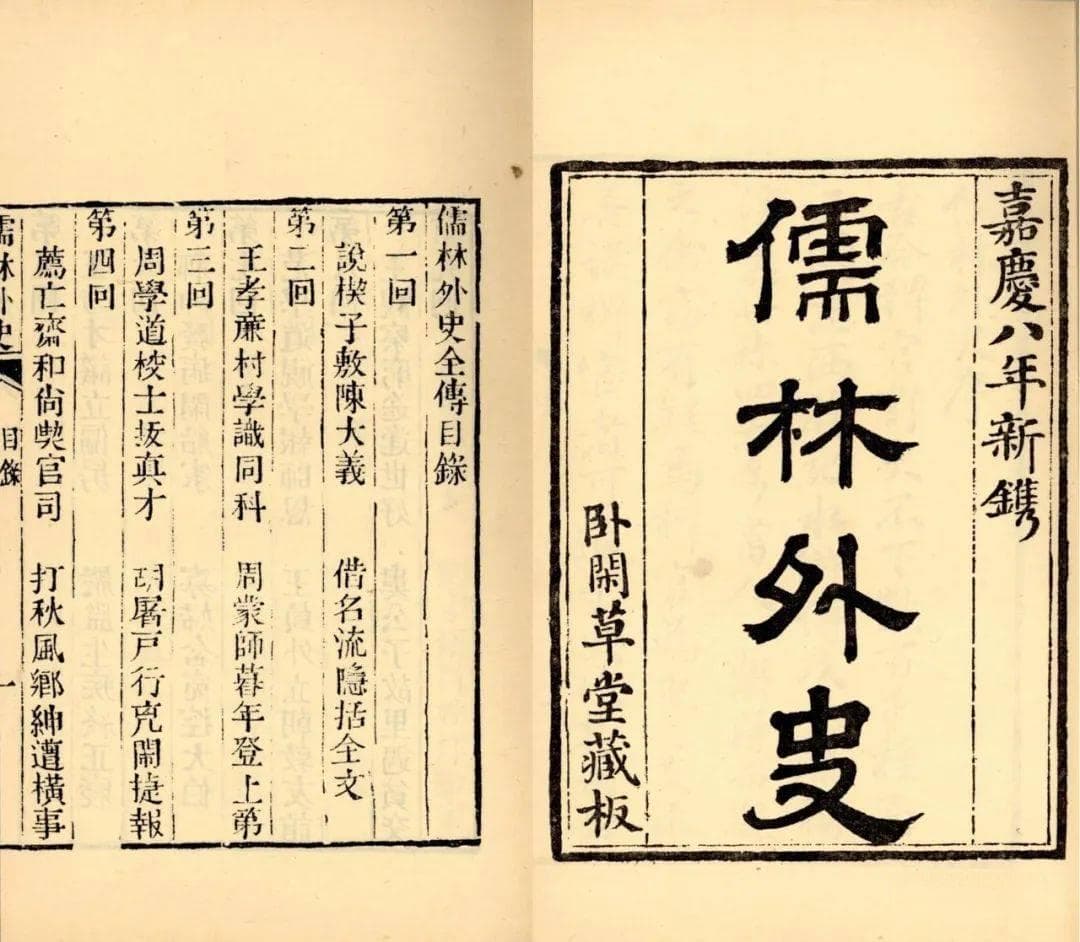 嘉慶八年新鐫
儒林外史
卧閑草堂藏板
儒林外史全傳目錄
第一回
說楔子敷陳大義 借名流隱括全文
第二回
王孝廉村學識同科 周蒙師暮年登上第
第三回
周學道校士拔真才 胡屠戶行兇鬧捷報
第四回
薦亡齋和尚喫官司 打秋風鄉紳遭橫事
儒林外史 目錄 一